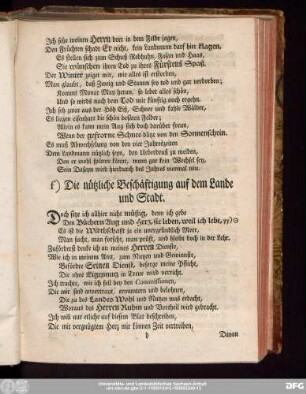 Ich sehe meinen Herrn dort in dem Felde jagen,
Den Früchten schadt Er nicht, kein Landmann darf hier klagen,
Es stellen sich zum Schuß Rebhuhn, Fasan und Haas,
Sie wünschen ihren Tod zu ihres Fürstens Spaß.
Der Winter zeiget mir, wie alles ist erstorben,
Man glaubt, daß Zweig und Stamm sey tod und gar verdorben;
Kommt Monat May heran, so lebet alles schön,
Und so wirds nach dem Tod mir künftig auch ergehn.
Ich seh zwar aus der Höh Eiß, Schnee und kahle Wälder,
Es liegen eisenhart die schön besäten Felder;
Allein es kann mein Aug sich doch darüber freun,
Wenn der gefrorne Schnee blitzt von den Sonnenschein.
Es muß Abwechselung von den vier Jahrszeiten
Dem Landmann nützlich seyn, den Ueberdruß zu meiden,
Den er wohl spüren könnt, wenn gar kein Wechsel sey,
Sein Dienst wird hierdurch des Jahres viermal neu.
f) Die nützliche Beschäftigung auf dem Lande
und Stadt.
Doch sitz ich allhier nicht müßig, denn ich gebe
Den Büchern Aug und Herz, sie leben, weil ich lebe,
Es ist die Wirthschaft ja ein unergründlich Meer,
Man sucht, man forscht, man prüft, und bleibt doch in der Lehr.
Zuförderst denk ich an meines Herren Dienste,
Wie ich in meinem Amt, zum Nutzen und Gewinnste,
Befördre Seinen Dienst, besorge meine Pflicht,
Die ohne Eigennutz in Treue wird verricht.
Ich trachte, wie ich soll bey den Commissionen,
Die mir sind anvertraut, ermuntern und belohnen,
Die zu des Landes Wohl und Nutzen was erdacht,
Woraus des Herren Ruhm und Vortheil wird gebracht.
Ich will nur etliche auf diesem Blat beschreiben,
Die mit vergnügten Herz mir können Zeit vertreiben,
b
Davon